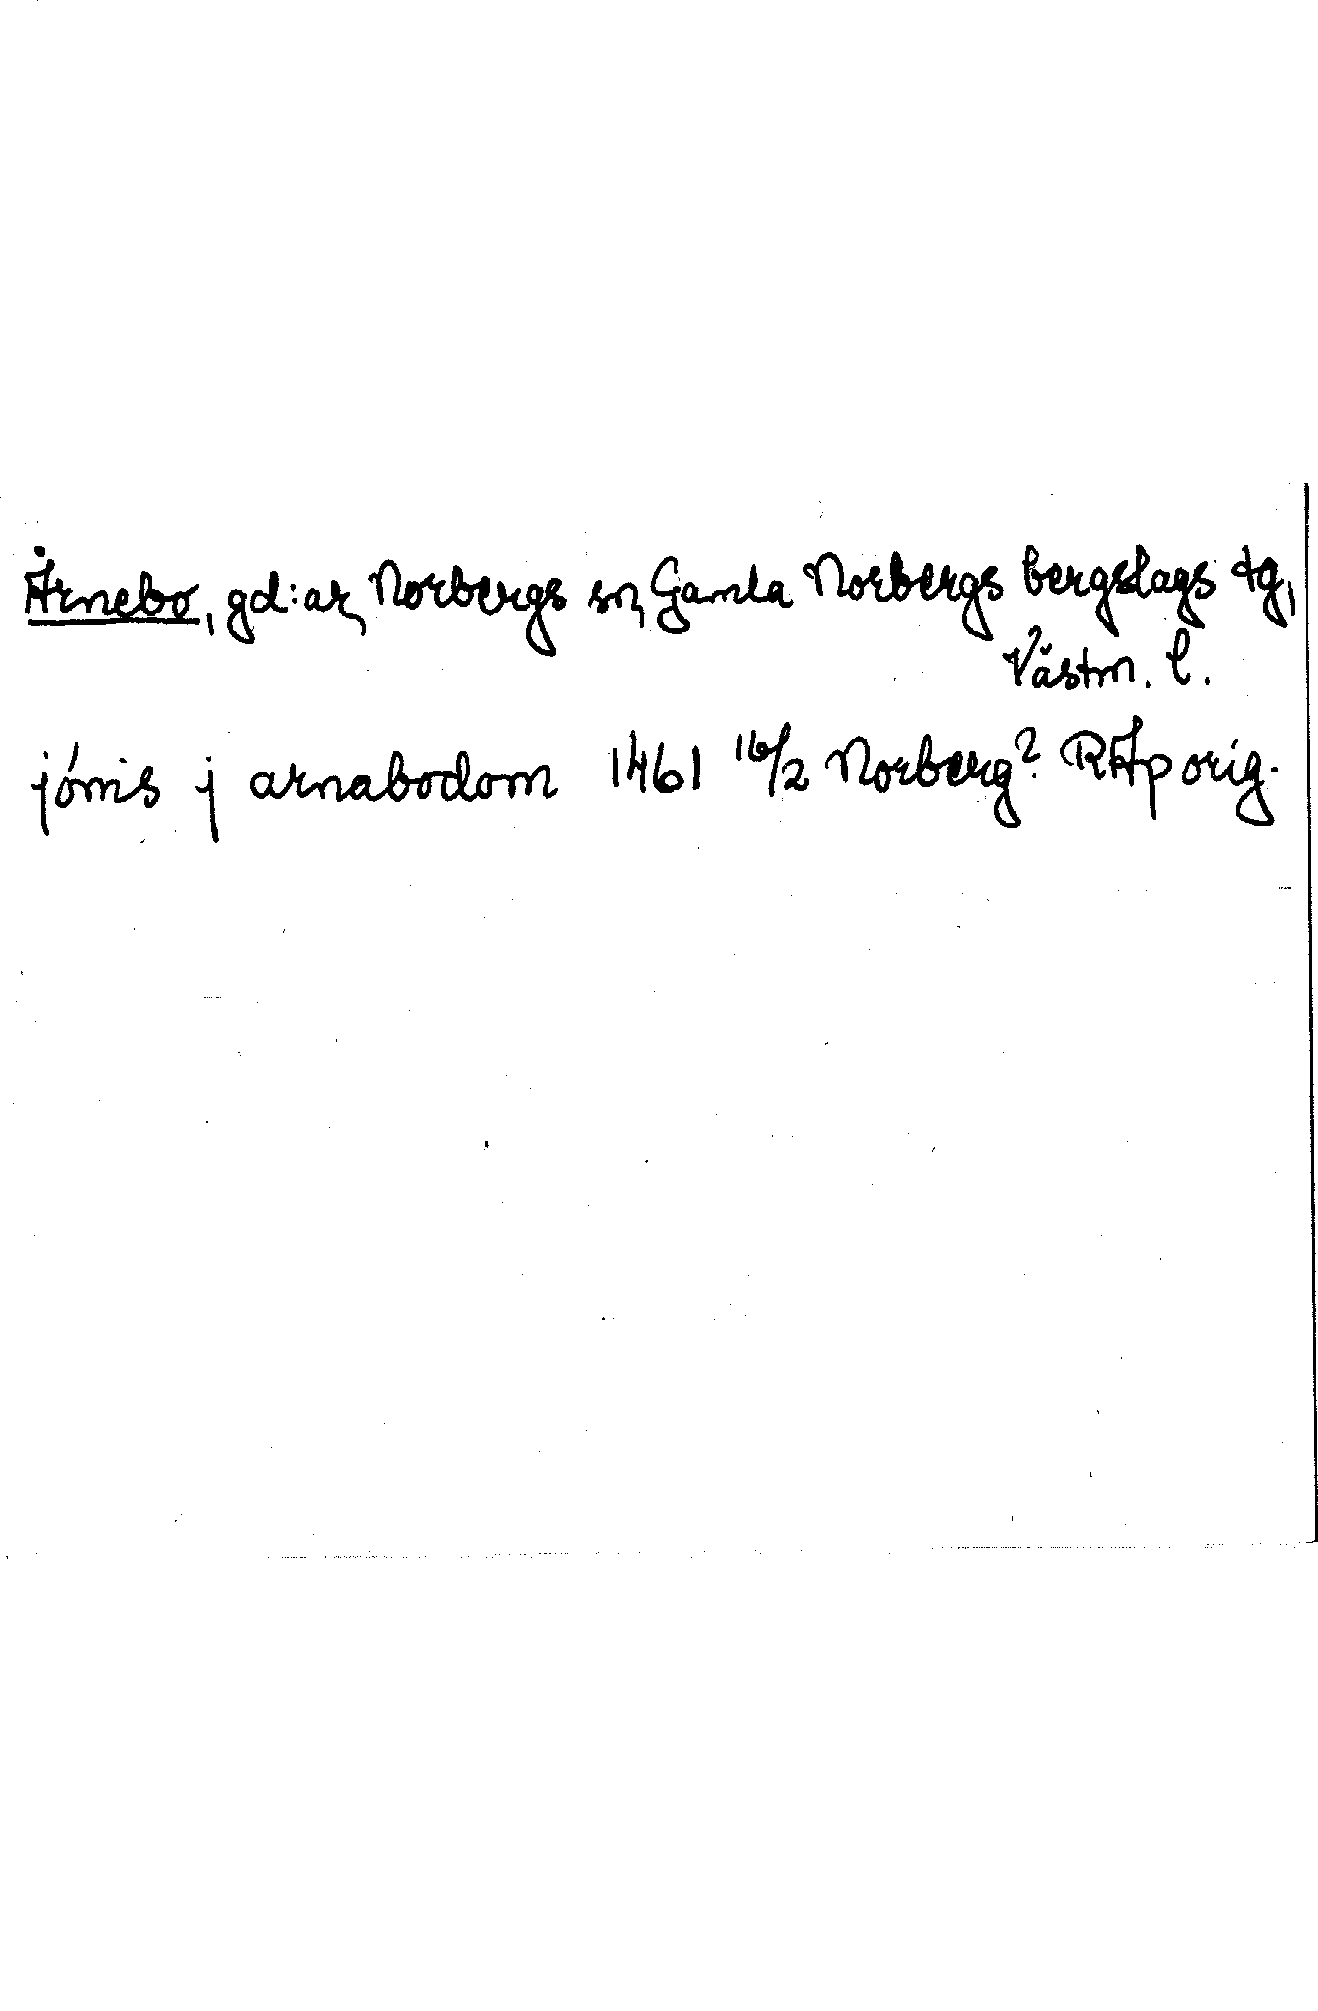 Årnebo, gd:ar, Norbergs sn, Gamla Norbergs bergslags tg,
Västm. l.
jónis j arnabodom 1461 16/2 Norberg? RAp orig.